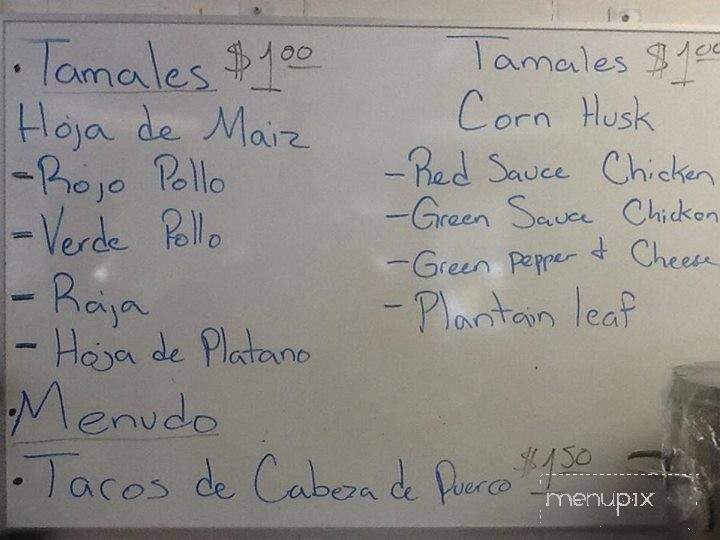 • Tamales $1.00
Hoja de Maiz
- Rojo Pollo
- Verde Pollo
- Raja
- Hoja de Platano
• Menudo
• Tacos de Cabeza de Puerco $1.50
Tamales $1.00
Corn Husk
- Red Sauce Chicken
- Green Sauce Chicken
- Green pepper & Cheese
- Plantain leaf
menupix